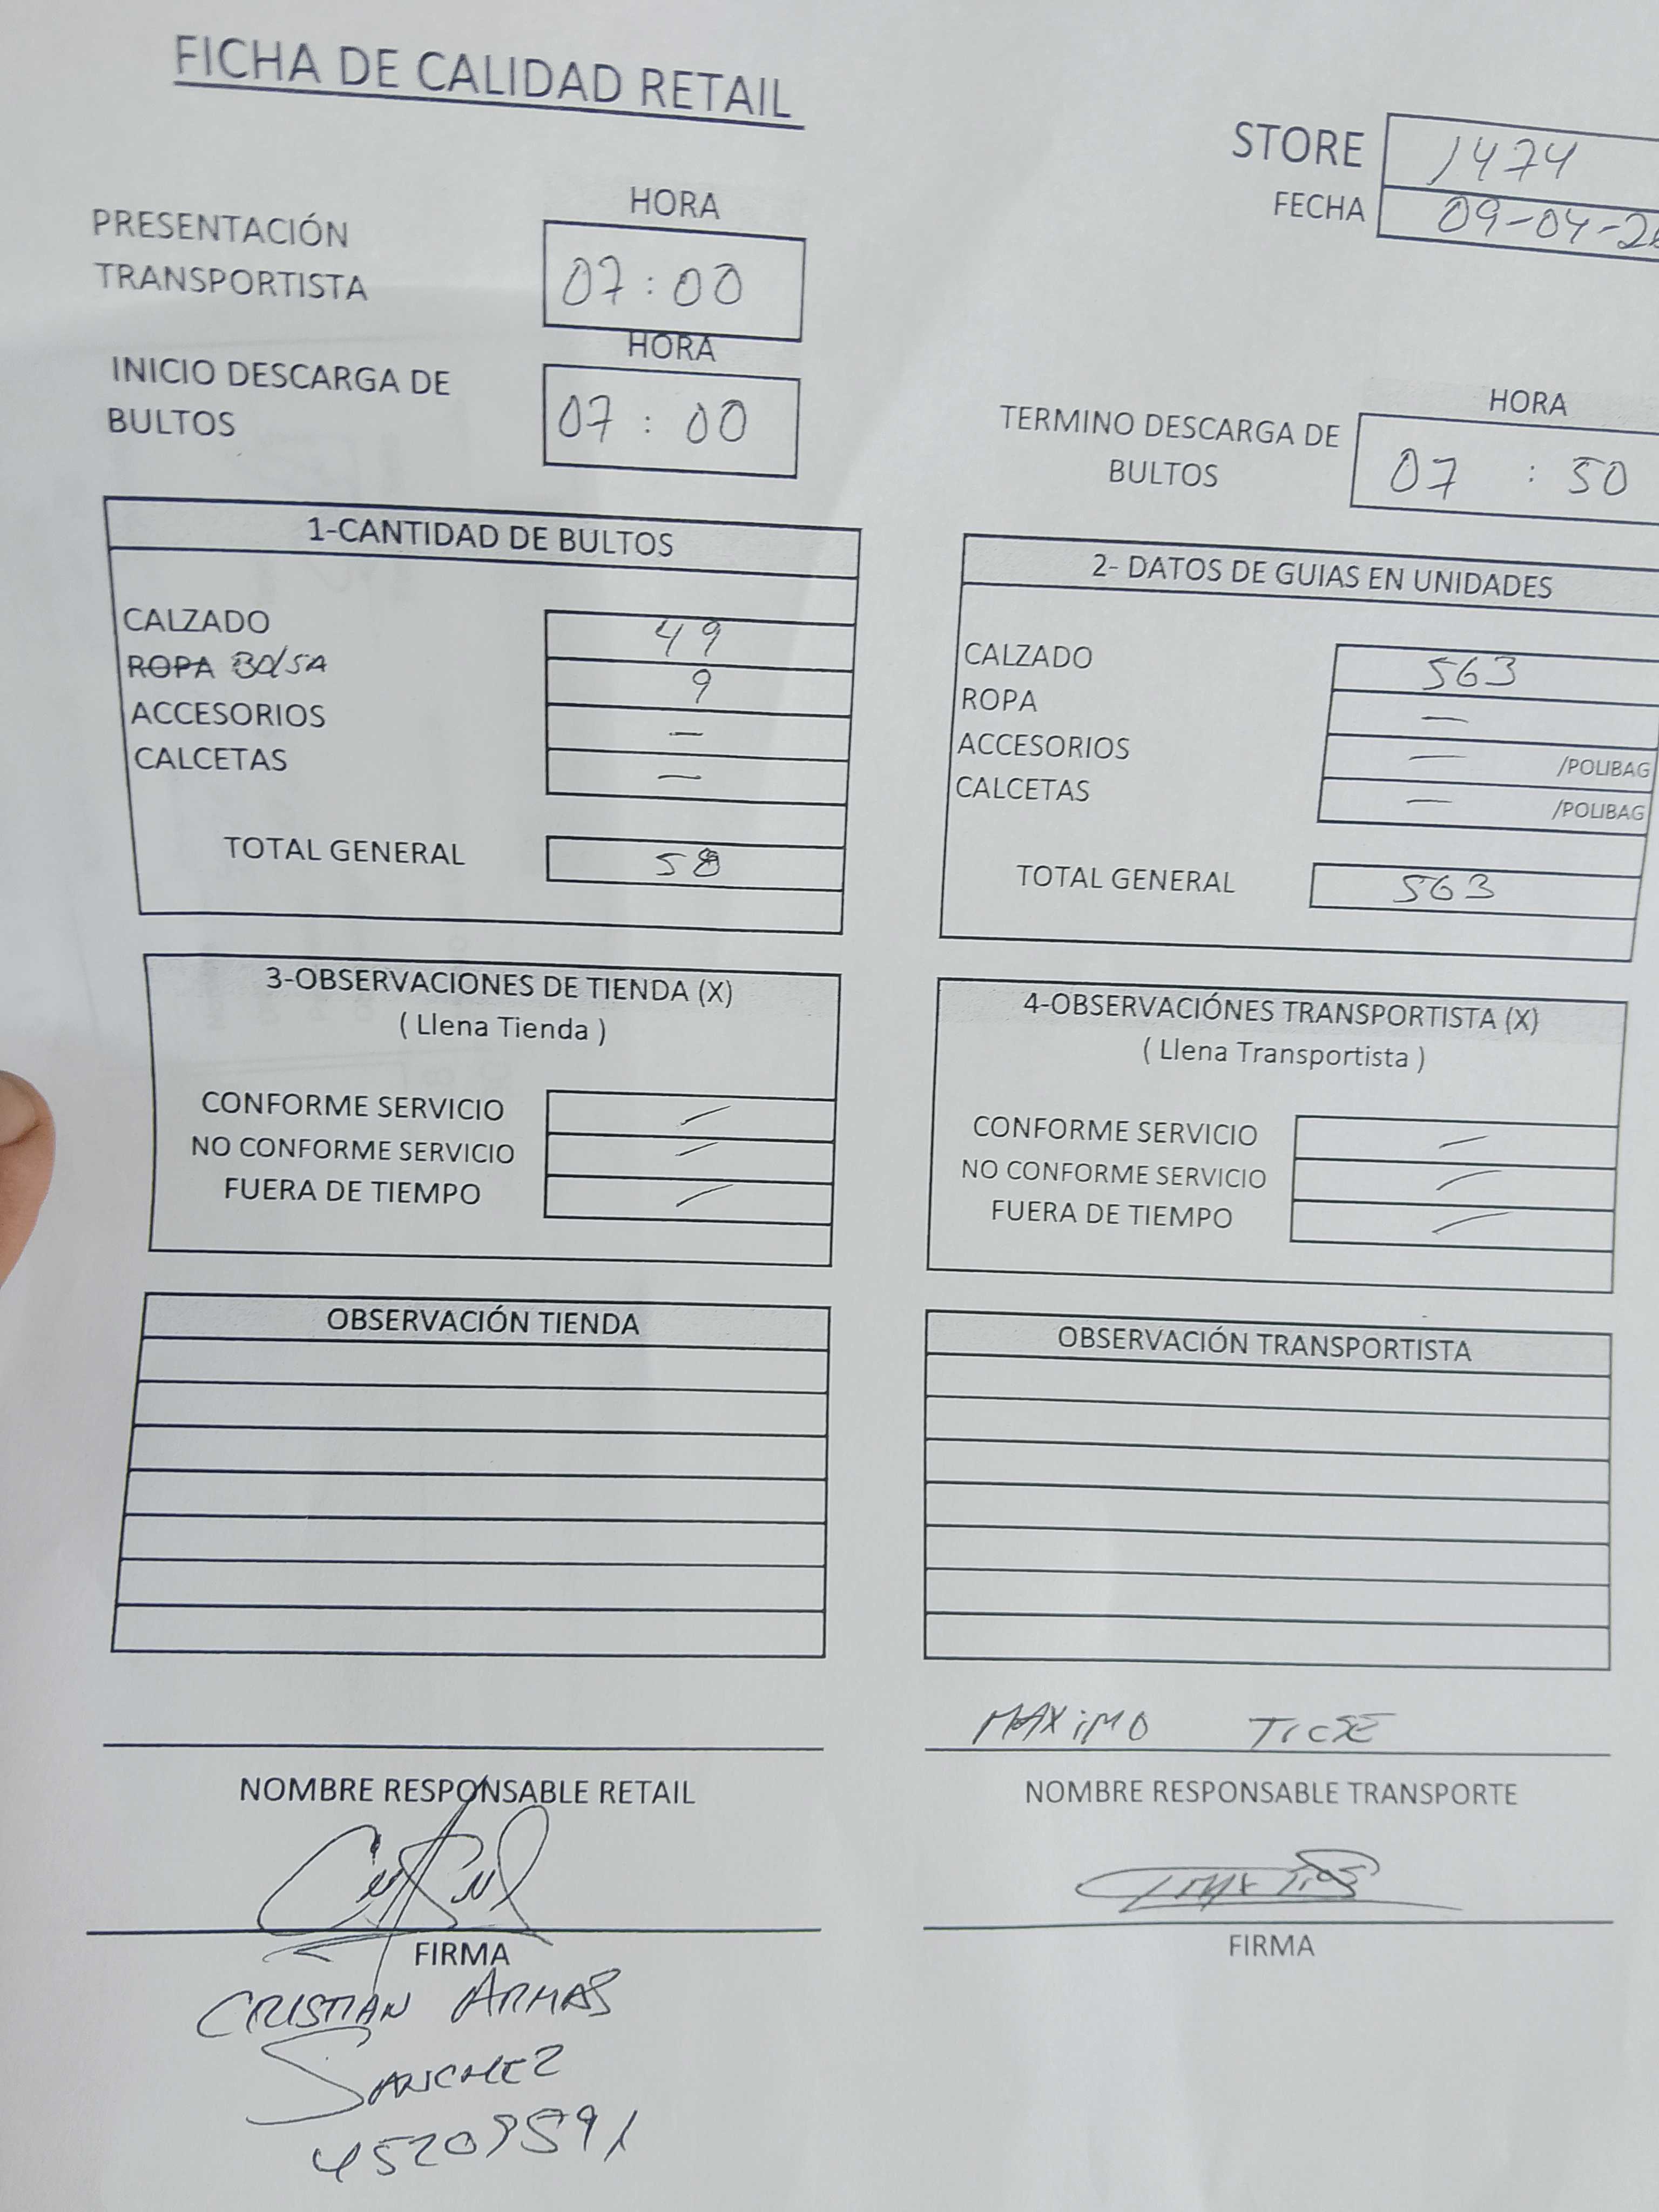 FICHA DE CALIDAD RETAIL
STORE 1474
FECHA 09-04-2
HORA
PRESENTACIÓN TRANSPORTISTA 07:00
HORA
INICIO DESCARGA DE BULTOS 07:00
HORA
TERMINO DESCARGA DE BULTOS 07:50
1-CANTIDAD DE BULTOS
CALZADO 49
ROPA BOLSA 9
ACCESORIOS —
CALCETAS —
TOTAL GENERAL 58
2- DATOS DE GUIAS EN UNIDADES
CALZADO 563
ROPA —
ACCESORIOS — /POLIBAG
CALCETAS — /POLIBAG
TOTAL GENERAL 563
3-OBSERVACIONES DE TIENDA (X)
( Llena Tienda )
CONFORME SERVICIO —
NO CONFORME SERVICIO —
FUERA DE TIEMPO —
4-OBSERVACIÓNES TRANSPORTISTA (X)
( Llena Transportista )
CONFORME SERVICIO —
NO CONFORME SERVICIO —
FUERA DE TIEMPO —
OBSERVACIÓN TIENDA
OBSERVACIÓN TRANSPORTISTA
NOMBRE RESPONSABLE RETAIL
FIRMA
CRISTIAN ARMAS
SANCHEZ
MAXIMO
NOMBRE RESPONSABLE TRANSPORTE
FIRMA